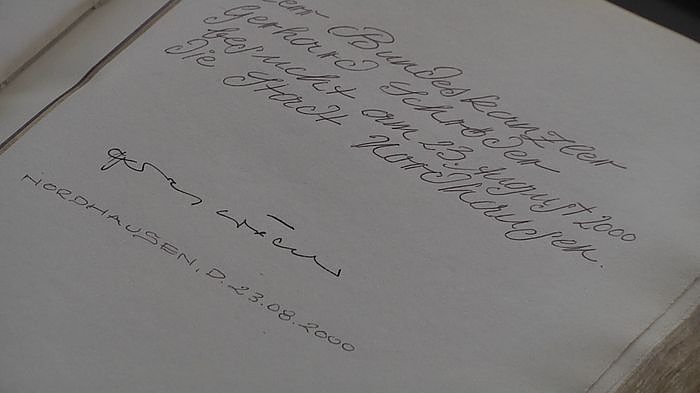 Herr Bundeskanzler
Gerhard Schröder
besucht am 23. August 2000
die Stadt Nordhausen.
NORDHAUSEN, D. 23.08.2000